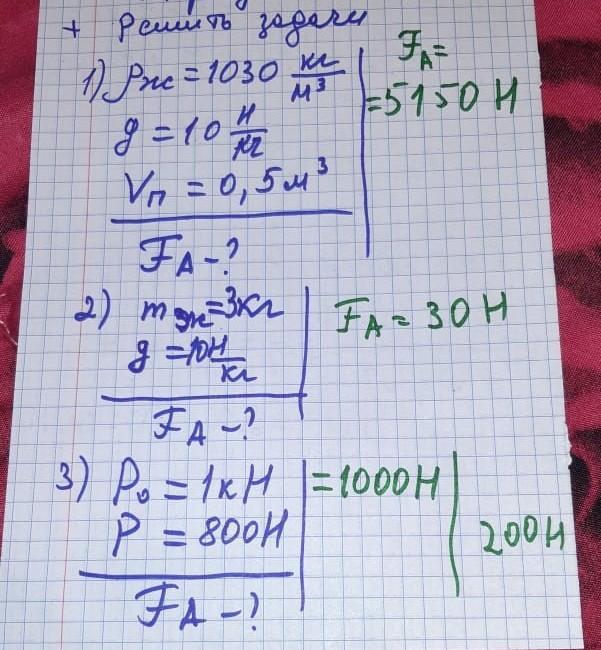 + Решить задачи
1) ρж = 1030 кг/м³
g = 10 Н/кг
Vп = 0,5 м³
FА - ?
FА =
= 5150 Н
2) mж = 3кг
g = 10Н/кг
FА - ?
FА = 30 Н
3) P₀ = 1кН
= 1000Н
P = 800Н
200Н
FА - ?